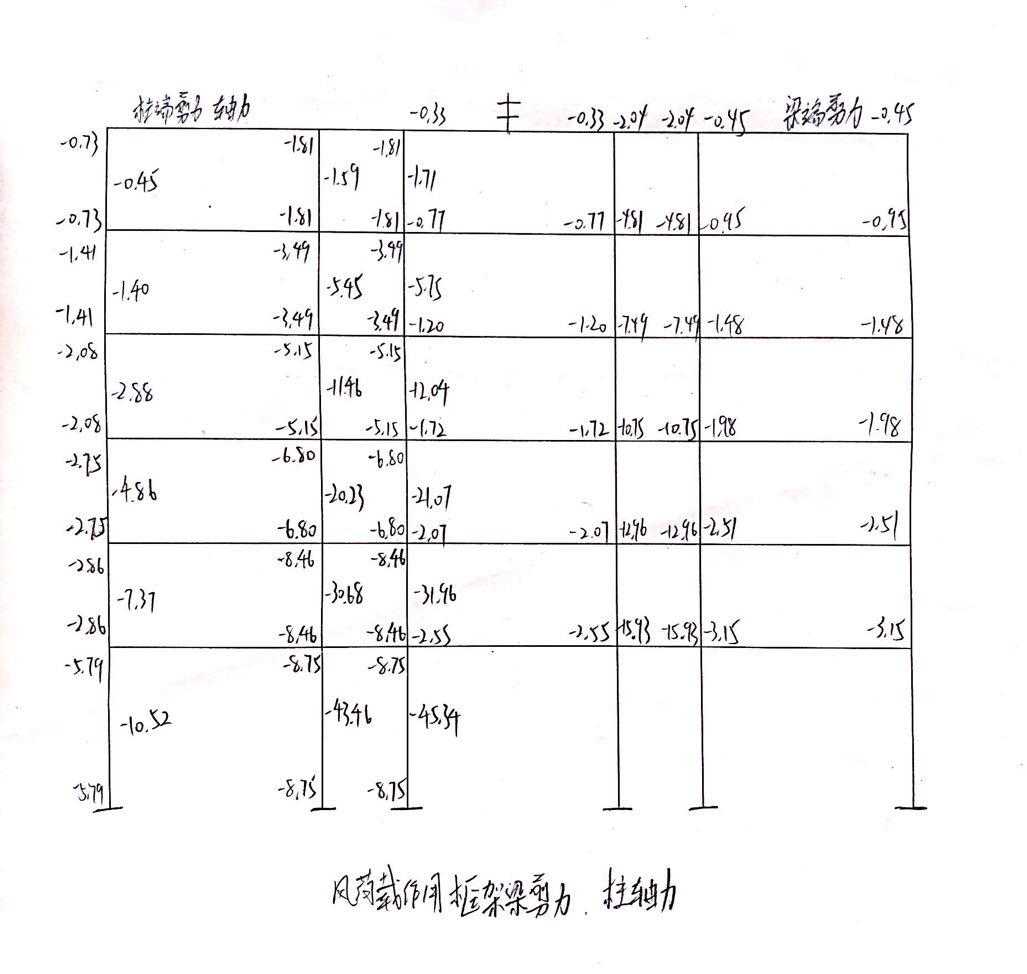 柱端剪力 轴力 -0.33 -0.33 -2.04 -2.04 -0.45 梁端剪力 -0.45
-0.73 -1.81 -1.81
-0.45 -1.59 -1.71
-0.73 -1.81 -1.81 -0.77 -0.77 -4.81 -4.81 -0.95 -0.95
-1.41 -3.49 -3.49
-1.40 -5.45 -5.75
-1.41 -3.49 -3.49 -1.20 -1.20 -7.49 -7.49 -1.48 -1.48
-2.08 -5.15 -5.15
-2.88 -11.46 -12.04
-2.08 -5.15 -5.15 -1.72 -1.72 -10.75 -10.75 -1.98 -1.98
-2.75 -6.80 -6.80
-4.86 -20.23 -21.07
-2.75 -6.80 -6.80 -2.07 -2.07 -12.96 -12.96 -2.51 -2.51
-2.86 -8.46 -8.46
-7.37 -30.68 -31.96
-2.86 -8.46 -8.46 -2.55 -2.55 -15.93 -15.93 -3.15 -3.15
-5.79 -8.75 -8.75
-10.52 -43.46 -45.34
-5.79 -8.75 -8.75
风荷载作用框架梁剪力、柱轴力